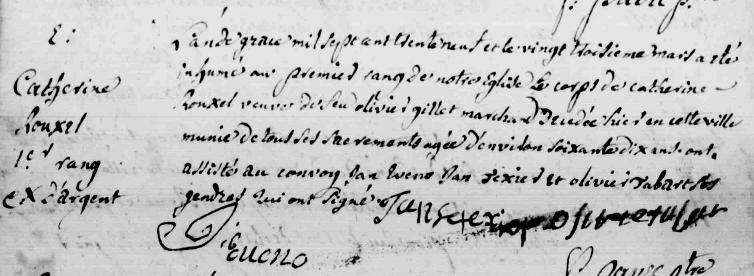 E:
Catherine
Rouxel
1er rang
ex d'argent
L'an de grace mil sept cent trente neuf et le vingt troisieme mars a eté
inhumé au premier rang de notre Eglise le corps de catherine
Rouxel veuve de feu olivier gillet marchand decedée hier en cette ville
munie de tous ses sacrements agée d'environ soixante dix ans. ont
assisté au convoy Jan Eveno Jan texier et olivier rabart ses
gendres qui ont signé
Jan texier
J Eveno